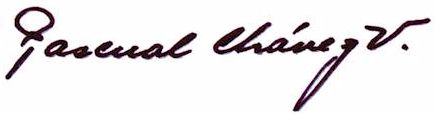 Pascual Chávez V.